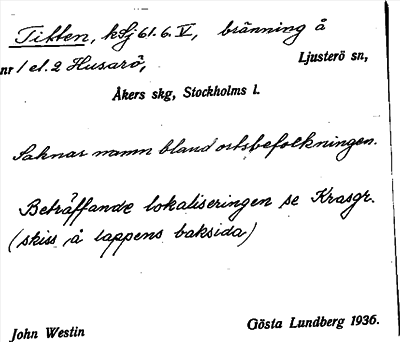 Titten, kfj 61.6.V, bränning å
nr 1 el. 2 Husarö, Ljusterö sn,
Åkers skg, Stockholms l.
Saknar namn bland ortsbefolkningen.
Beträffande lokaliseringen se Krasgr.
(skiss å lappens baksida)
John Westin Gösta Lundberg 1936.